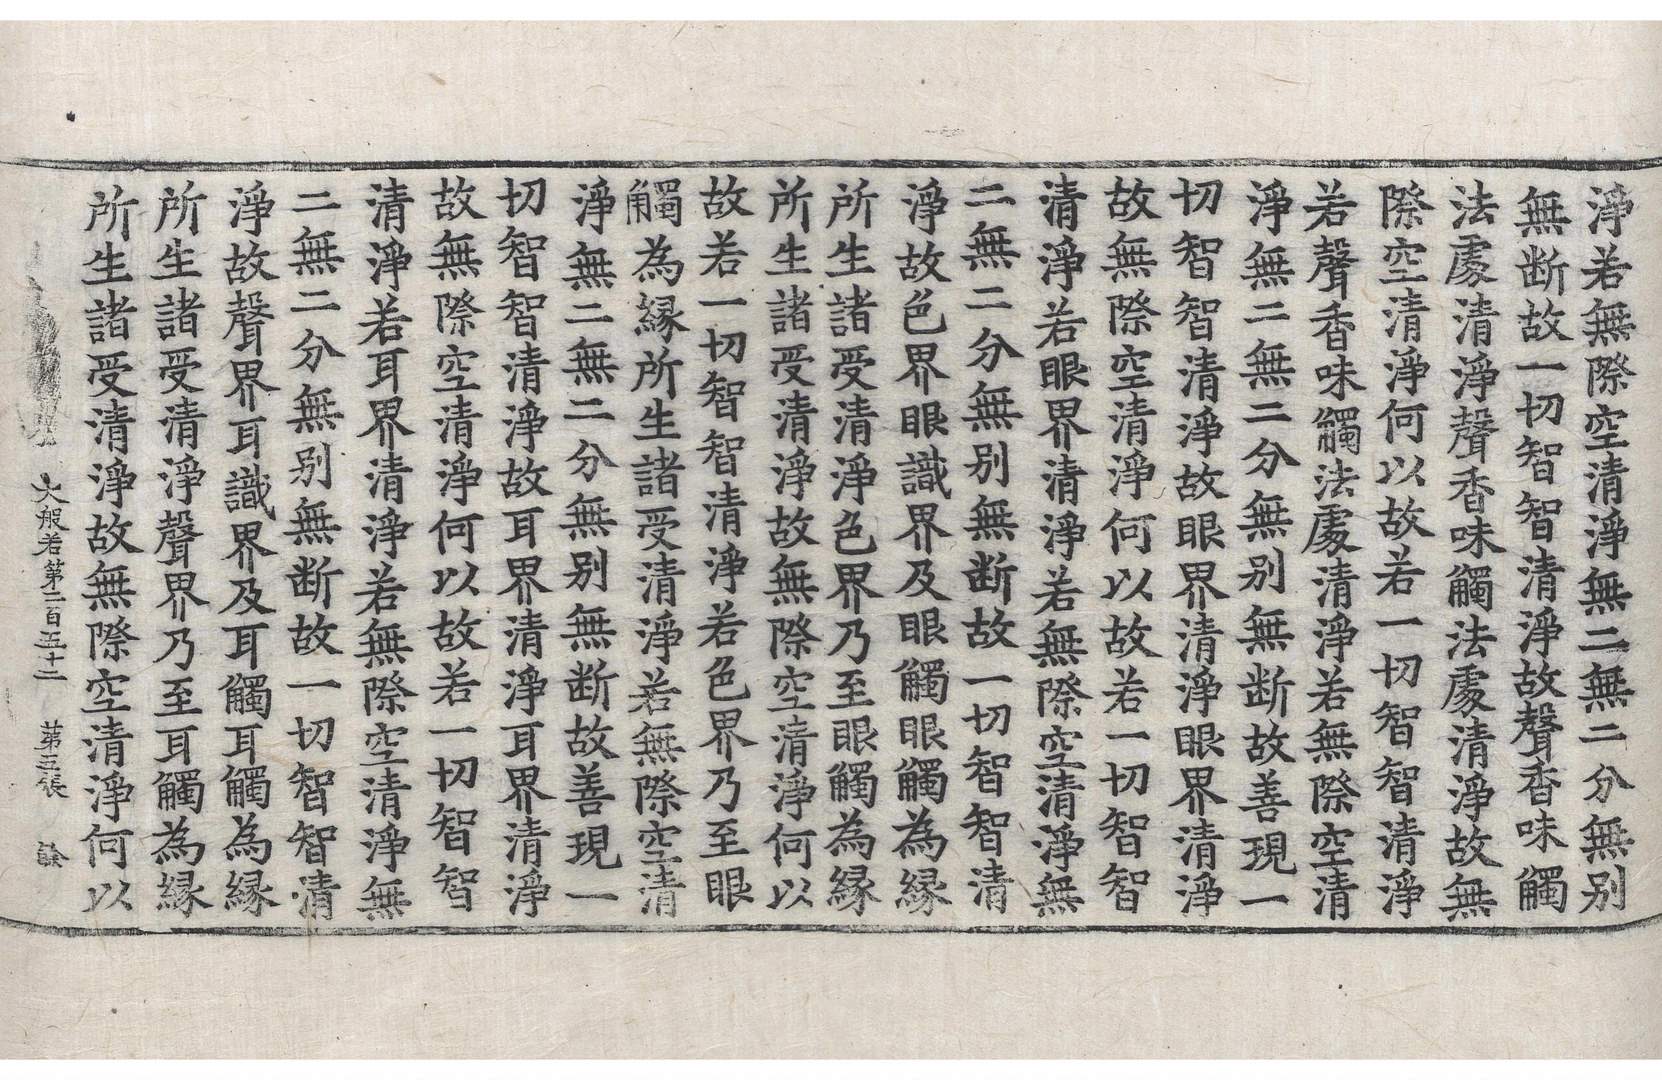 淨若無際空清淨無二無二分無别
無断故一切智智清淨故聲香味觸
法處清淨聲香味觸法處清淨故無
際空清淨何以故若一切智智清淨
若聲香味觸法處清淨若無際空清
淨無二無二分無别無断故善現一
切智智清淨故眼界清淨眼界清淨
故無際空清淨何以故若一切智智
清淨若眼界清淨若無際空清淨無
二無二分無别無断故一切智智清
淨故色界眼識界及眼觸眼觸為縁
所生諸受清淨色界乃至眼觸為縁
所生諸受清淨故無際空清淨何以
故若一切智智清淨若色界乃至眼
觸為縁所生諸受清淨若無際空清
淨無二無二分無别無断故善現一
切智智清淨故耳界清淨耳界清淨
故無際空清淨何以故若一切智智
清淨若耳界清淨若無際空清淨無
二無二分無别無断故一切智智清
淨故聲界耳識界及耳觸耳觸為縁
所生諸受清淨聲界乃至耳觸為縁
所生諸受清淨故無際空清淨何以
大般若第二百五十二 第三張 餘